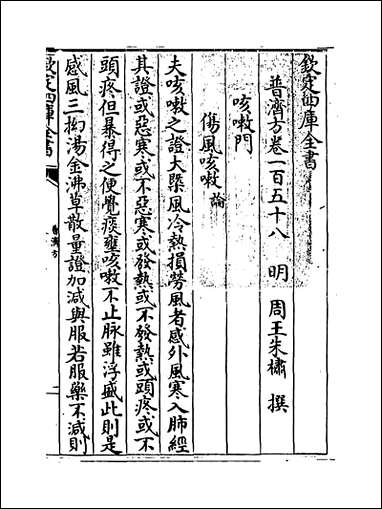 欽定四庫全書
普濟方卷一百五十八　明　周王朱橚　撰
咳嗽門
傷風咳嗽論
夫咳嗽之證大槩風冷熱損勞風者感外風寒入肺經
其證或惡寒或不惡寒或發熱或不發熱或頭疼或不
頭疼但暴得之便覺痰壅咳嗽不止脉雖浮盛此則是
感風三拗湯金沸草散量證加減與服若服藥不減則
欽定四庫全書
普濟方